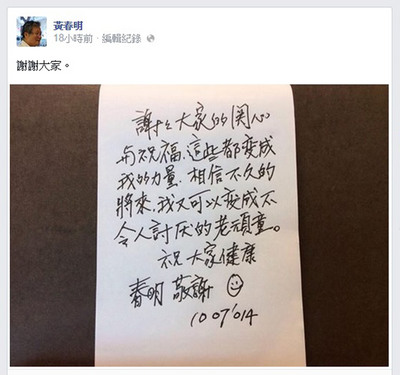 黃春明
18小時前 · 編輯紀錄 ·
謝謝大家。
謝々大家的関心
与祝福,這些都变成
我的力量.相信不久的
將來,我又可以变成不
令人討厌的老頑童。
祝大家健康
春明 敬謝 ☺
10 07 '014